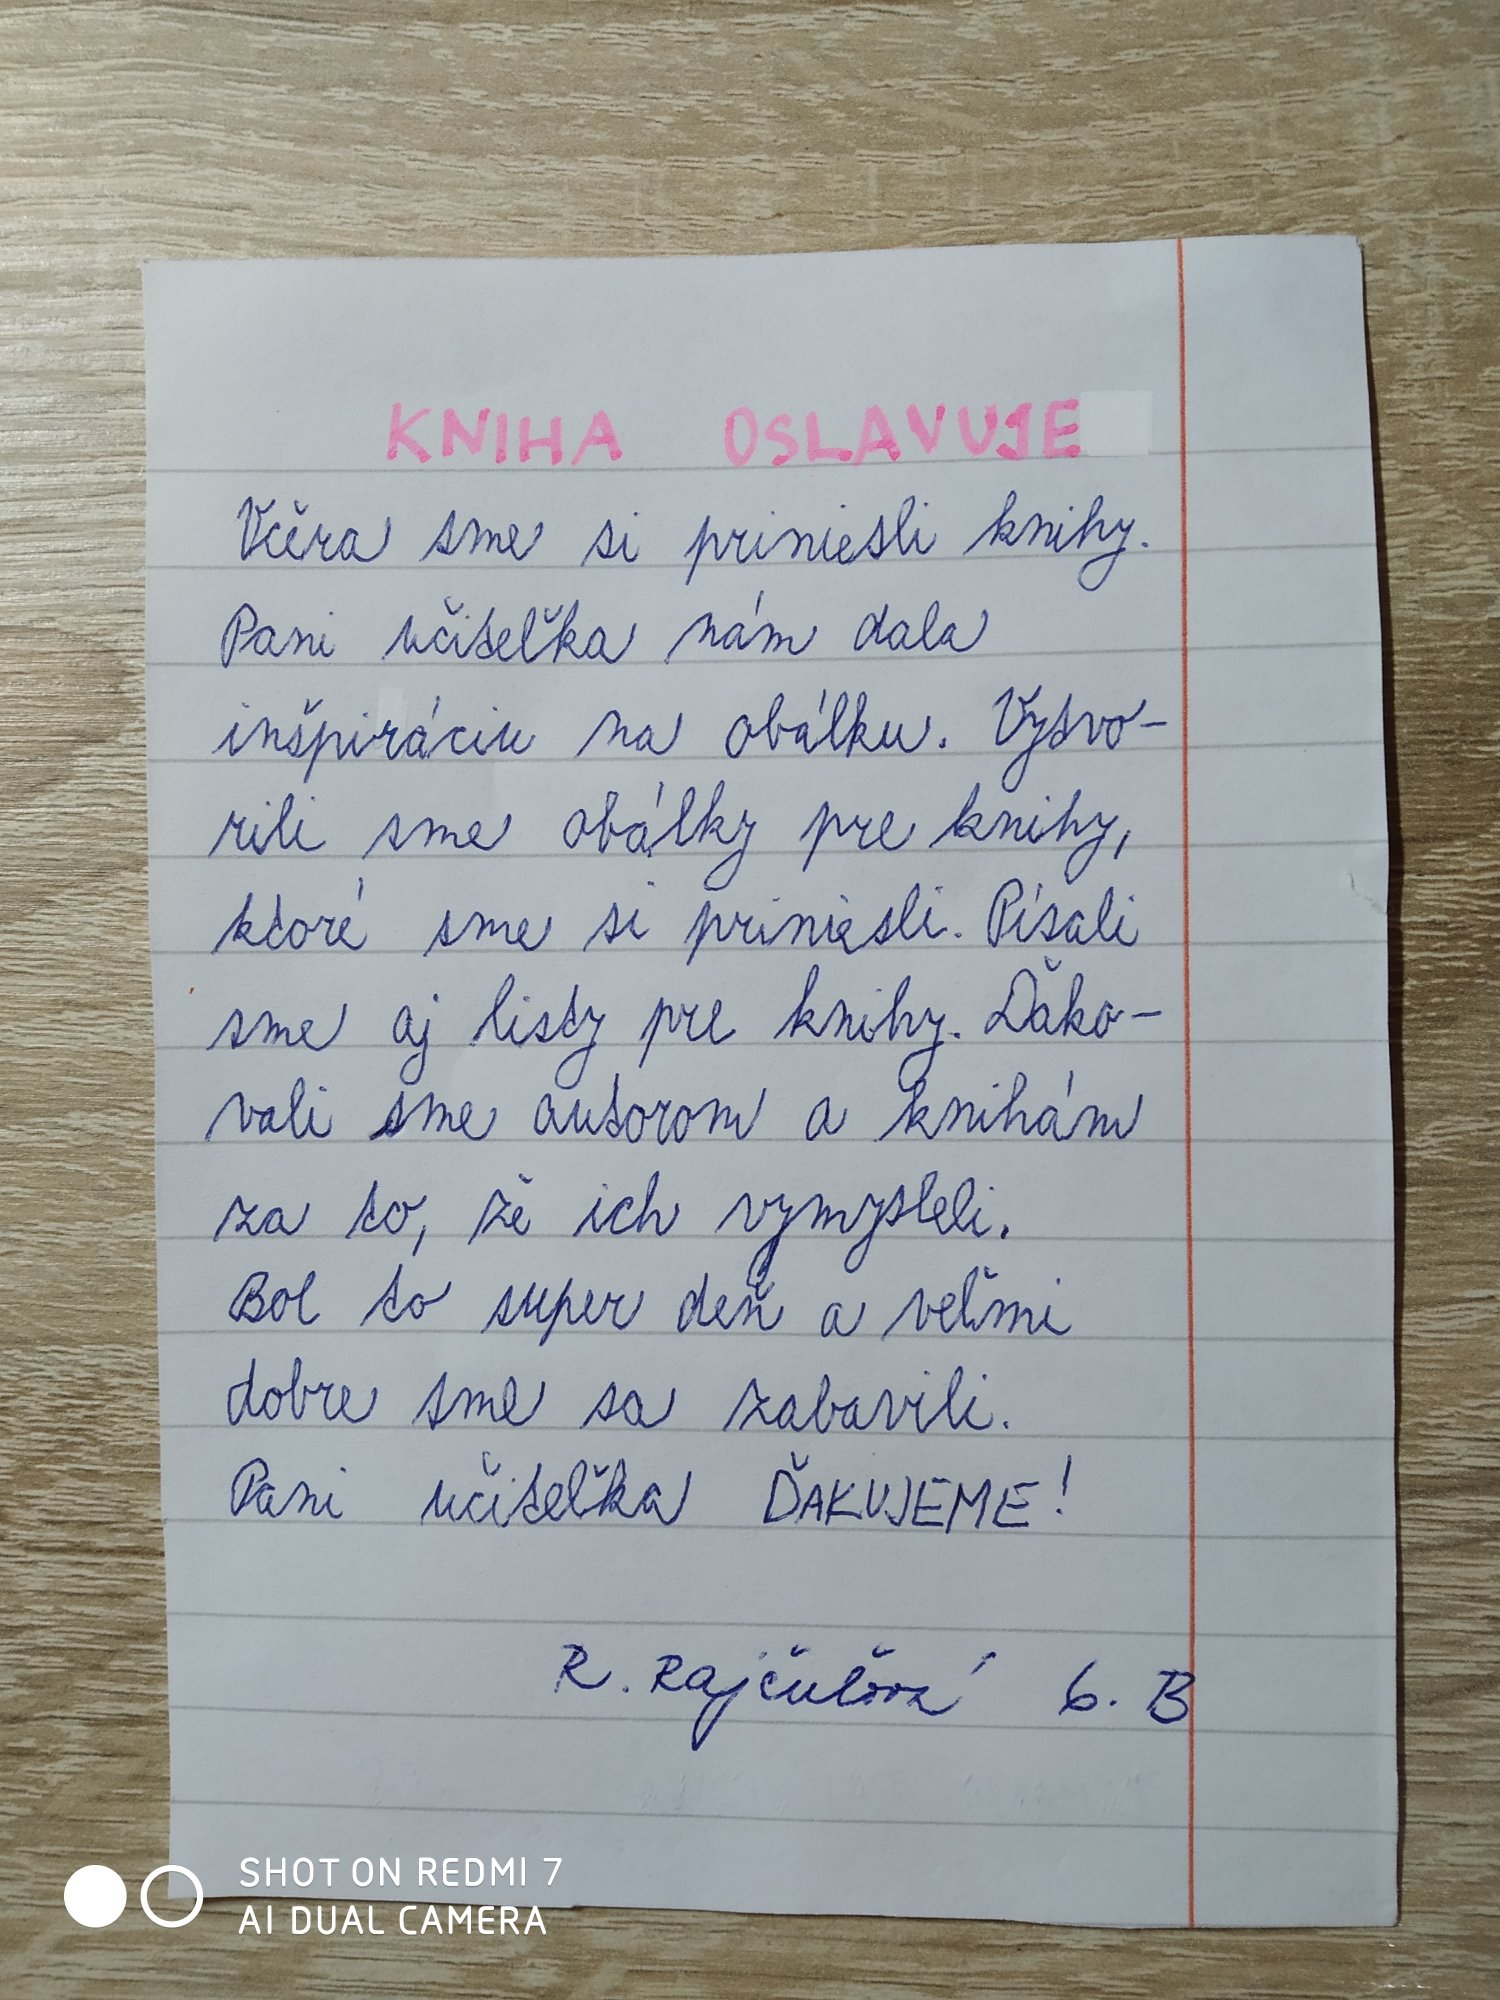 KNIHA OSLAVUJE
Včera sme si priniesli knihy.
Pani učiteľka nám dala
inšpiráciu na obálku. Vytvo-
rili sme obálky pre knihy,
ktoré sme si priniesli. Písali
sme aj listy pre knihy. Ďako-
vali sme autorom a knihám
za to, že ich vymysleli.
Bol to super deň a veľmi
dobre sme sa zabavili.
Pani učiteľka ĎAKUJEME!
R. 6. B
SHOT ON REDMI 7
AI DUAL CAMERA